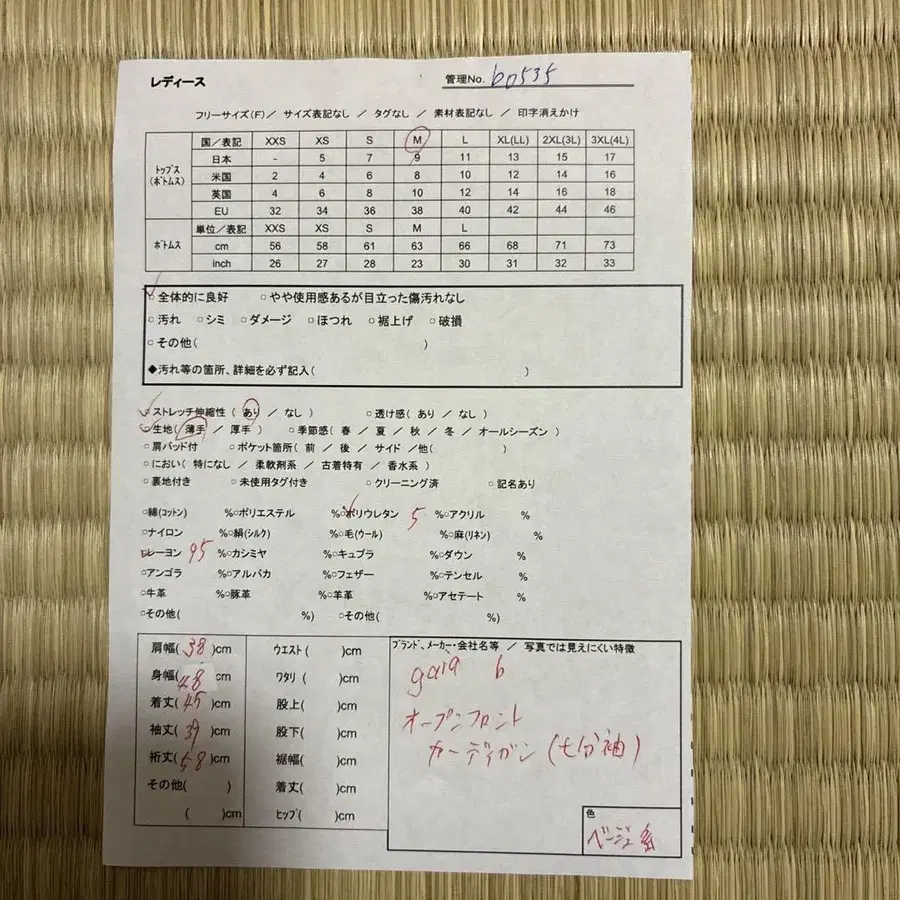 レディース 管理No. b0535
フリーサイズ(F)／ サイズ表記なし ／ タグなし ／ 素材表記なし ／ 印字消えかけ
トップス(ボトムス) 国／表記 XXS XS S M L XL(LL) 2XL(3L) 3XL(4L)
日本 - 5 7 9 11 13 15 17
米国 2 4 6 8 10 12 14 16
英国 4 6 8 10 12 14 16 18
EU 32 34 36 38 40 42 44 46
ボトムス 単位／表記 XXS XS S M L
cm 56 58 61 63 66 68 71 73
inch 26 27 28 23 30 31 32 33
全体的に良好 ▫やや使用感あるが目立った傷汚れなし
▫汚れ ▫シミ ▫ダメージ ▫ほつれ ▫裾上げ ▫破損
▫その他( )
◆汚れ等の箇所、詳細を必ず記入( )
▫ストレッチ伸縮性 ( あり ／ なし ) ▫透け感 ( あり ／ なし )
▫生地( 薄手 ／ 厚手 ) ▫季節感( 春 ／ 夏 ／ 秋 ／ 冬 ／ オールシーズン )
▫肩パッド付 ▫ポケット箇所( 前 ／ 後 ／ サイド ／他( )
▫におい( 特になし ／ 柔軟剤系 ／ 古着特有 ／ 香水系 )
▫裏地付き ▫未使用タグ付き ▫クリーニング済 ▫記名あり
▫綿(コットン) %▫ポリエステル %▫ポリウレタン 5 %▫アクリル %
▫ナイロン %▫絹(シルク) %▫毛(ウール) %▫麻(リネン) %
▫レーヨン 95 %▫カシミヤ %▫キュプラ %▫ダウン %
▫アンゴラ %▫アルパカ %▫フェザー %▫テンセル %
▫牛革 %▫豚革 %▫羊革 %▫アセテート %
▫その他( %) ▫その他( %)
肩幅( 38 )cm ウエスト ( )cm
身幅( 48 cm ワタリ ( )cm
着丈( 45 )cm 股上( )cm
袖丈( 39 )cm 股下( )cm
裄丈( 58 )cm 裾幅( )cm
その他( ) 着丈( )cm
( )cm ヒップ( )cm
ブランド、メーカー・会社名等 ／ 写真では見えにくい特徴
gaia b
オープンフロント
カーディガン (七分袖)
色
ベージュ系